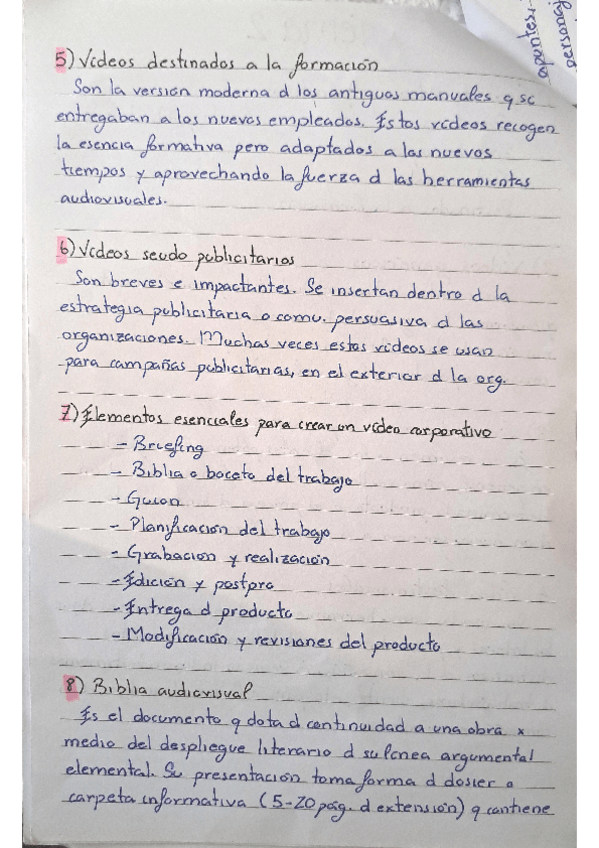 apuntes.
personaj
5) Vídeos destinados a la formación
Son la versión moderna d los antiguos manuales q se
entregaban a los nuevos empleados. Estos vídeos recogen
la esencia formativa pero adaptados a las nuevos
tiempos y aprovechando la fuerza d las herramientas
audiovisuales.
6) Vídeos seudo publicitarios
Son breves e impactantes. Se insertan dentro d la
estrategia publicitaria o comu. persuasiva d las
organizaciones. Muchas veces estos vídeos se usan
para campañas publicitarias, en el exterior d la org.
7) Elementos esenciales para crear un vídeo corporativo
- Briefing
- Biblia o boceto del trabajo
- Guion
- Planificación del trabajo
- Grabación y realización
- Edición y postpro
- Entrega d producto
- Modificación y revisiones del producto
8) Biblia audiovisual
Es el documento q dota d continuidad a una obra x
medio del despliegue literario d su línea argumental
elemental. Su presentación toma forma d dosier o
carpeta informativa (5-20 pág. d extensión) q contiene